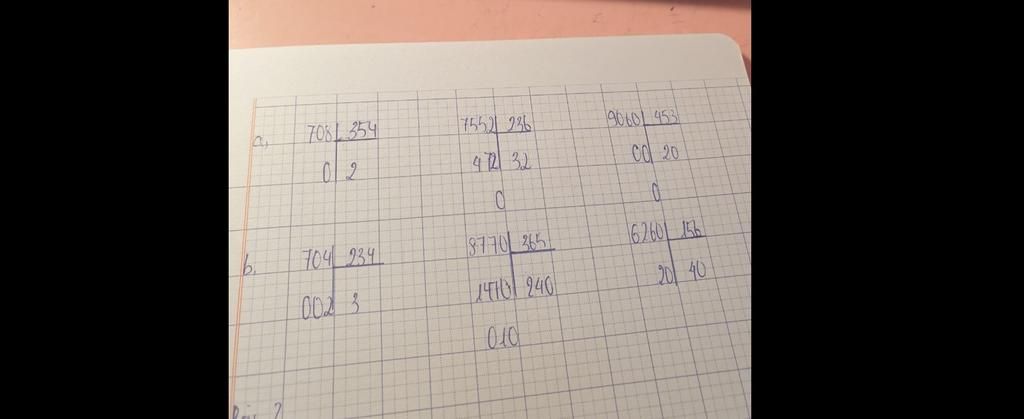 a, 708 354 7552 236 9060 453
0 2 472 32 00 20
0 0
b. 704 234 8770 365 6260 156
002 3 1470 240 20 40
010